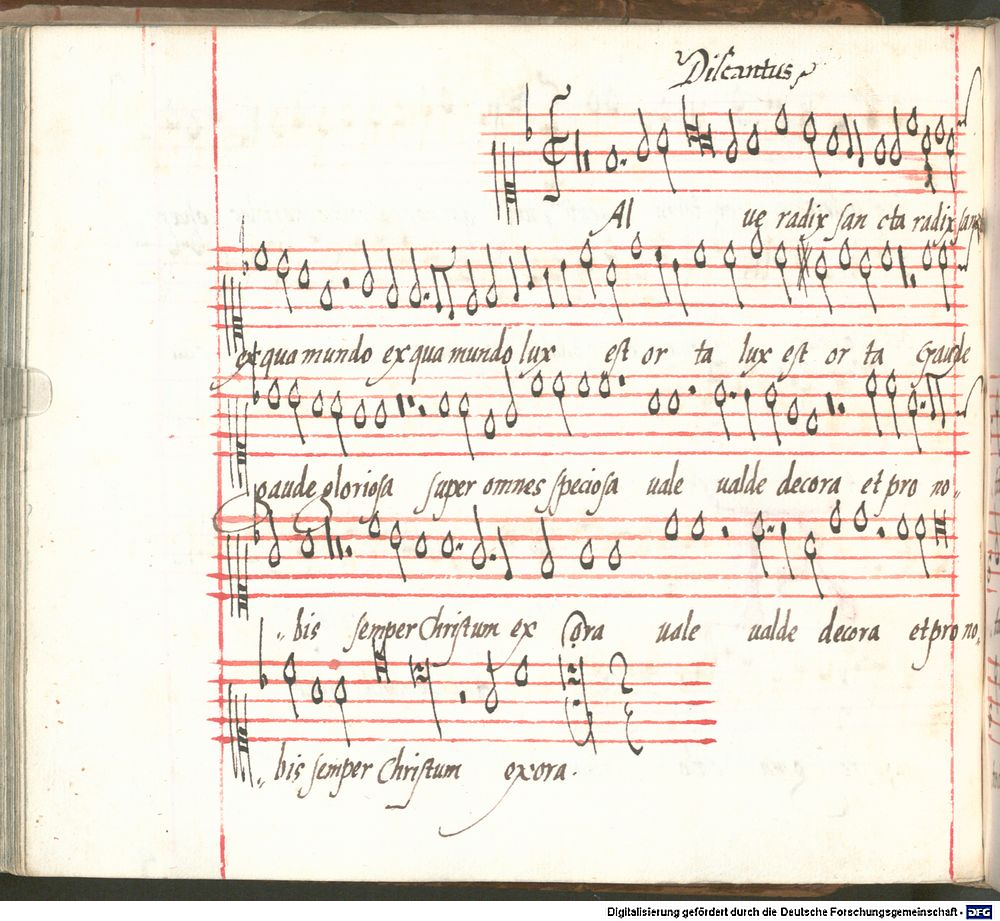 Discantus
Al ue radix san cta radix sancta
ex qua mundo ex qua mundo lux est or ta lux est or ta Gaude
gaude gloriosa super omnes speciosa uale ualde decora et pro no„
„bis semper Christum ex ora uale ualde decora et pro no„
„bis semper Christum exora.
Digitalisierung gefördert durch die Deutsche Forschungsgemeinschaft - DFG